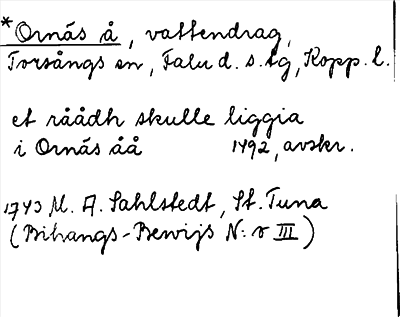 *Ornäs å, vattendrag,
Torsångs sn, Falu d. s. tg, Kopp. l.
et råådh skulle liggia
i Ornäs åå 1492, avskr.
1743 M. A. Sahlstedt, St. Tuna
(Bihangs-Bewijs N:o III)